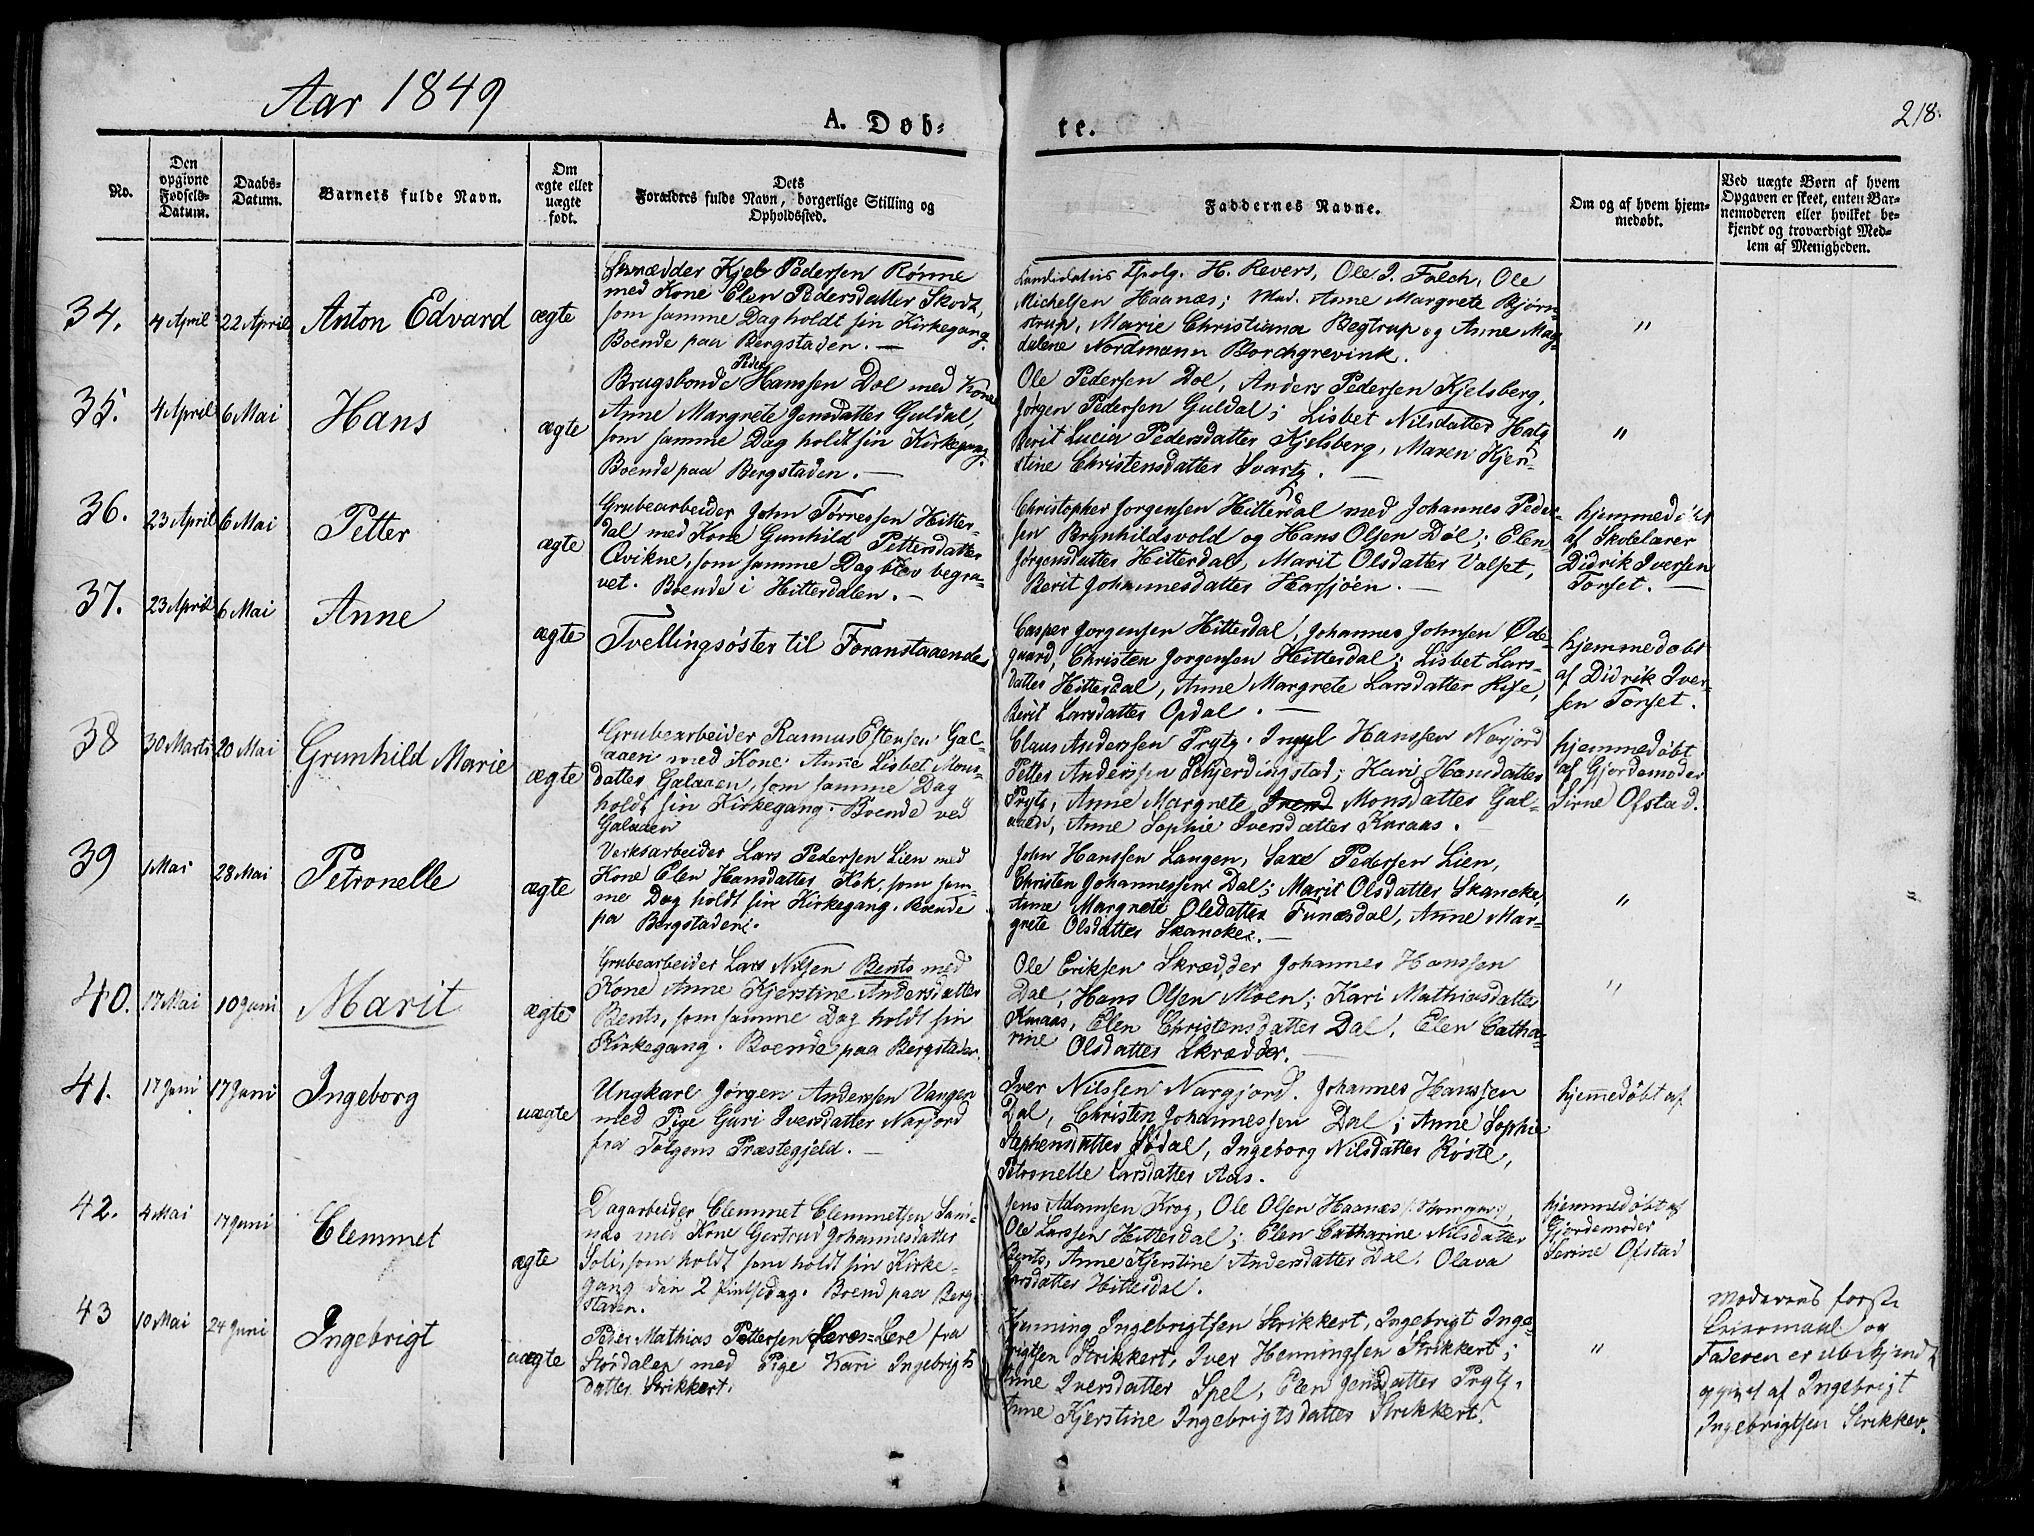 Aar 1849
A. Døb-
te.
218.
No.
Den
opgivne
Fødsels-
Datum.
Daabs-
Datum.
Barnets fulde Navn.
Om
ægte eller
uægte
født.
Dets
Forældres fulde Navn, borgerlige Stilling og
Opholdssted.
Faddernes Navne.
Om og af hvem hjem-
medøbt.
Ved uægte Børn af hvem
Opgaven er skeet, enten Bar-
nemoderen eller hvilket be-
kjendt og troværdigt Med-
lem af Menigheden.
34.
4 April
22 April
Anton Edvard
ægte
Skrædder Kjel Pedersen Rønne
med Kone Elen Pedersdatter Skodt,
som samme Dag holdt sin Kirkegang.
Boende paa Bergstaden. —
Candidatus H. Revers, Ole J. Falch, Ole
Michelsen Haanæs; Mad. Anne Margrete Bjørn-
strup, Marie Christiana Begtrup og Anne Mag-
dalene Nordmann Borchgrevink.
"
35.
4 April
6 Mai
Hans
ægte
Peder
Brugsbonde Hanssen Dol med Kone
Anne Margrete Jensdatter Guldal,
som samme Dag holdt sin Kirkegang.
Boende paa Bergstaden. —
Ole Pedersen Dol, Anders Pedersen Kjelsberg,
Jørgen Pedersen Guldal; Lisbet Nilsdatter
Berit Lucia Pedersdatter Kjelsberg, Maren Kjer-
stine Christensdatter Svartz. —
"
36.
23 April
6 Mai
Petter
ægte
Grubearbeider John Tørressen Hitter-
dal med Kone Gunhild Pettersdatter
Qvikne, som samme Dag blev begra-
vet. Boende i Hitterdalen. —
Christopher Jorgensen Hitterdal med Johannes Peder-
sen Brynhildsvold og Hans Olsen Døl; Elen
Jørgensdatter Hitterdal, Marit Olsdatter Valset,
Berit Johannesdatter Harsjøen. —
hjemmedøbt
af Skolelærer
Didrik Iversen
Torset. —
37.
23 April
6 Mai
Anne
ægte
Tvellingsøster til Foranstaaende
Casper Jorgensen Hitterdal, Johannes Johnsen Øde-
gaard, Christen Jorgensen Hitterdal; Lisbet Lars-
datter Hitterdal, Anne Margrete Larsdatter Rise,
Berit Larsdatter Opdal. —
hjemmedøbt
af Didrik Iver-
sen Torset.
38
30 Marts
20 Mai
Grunhild Marie
ægte
Grubearbeider Rasmus Estensen Gal-
aaen med Kone Anne Lisbet Mons-
datter Galaaen, som samme Dag
holdt sin Kirkegang. Boende ved
Galaaen
Claus Anderssen Prytz, Hanssen Narjord
Petter Anderssen Schjerdingstad; Kari Hansdatter
Prytz, Anne Margrete Monsdatter Gal-
aaen, Anne Sophie Iversdatter Knaas.
hjemmedøbt
af Gjordemoder
Sirne Ofstad.
39
1 Mai
28 Mai
Petronelle
ægte
Verksarbeider Lars Pedersen Lien med
Kone Elen Hansdatter Kok, som sam-
me Dag holdt sin Kirkegang. Boende
pa Bergstaden.
John Hanssen Langen, Saxe Pedersen Lien,
Christen Johannessen Dal; Marit Olsdatter Skancke,
Anne Margrete Olsdatter Funæsdal, Anne Mar-
grete Olsdatter Skancke. —
"
40.
17 Mai
10 Juni
Marit
ægte
Grubearbeider Lars Nilsen Bents med
Kone Anne Kjerstine Andersdatter
Bents, som samme Dag holdt sin
Kirkegang. Boende paa Bergstaden.
Ole Eriksen Skrædder Johannes Hanssen
Dal, Hans Olsen Moen; Kari Mathiasdatter
Knaas, Elen Christensdatter Dal, Elen Catha-
rine Olsdatter Skrædder. —
"
41.
17 Juni
17 Juni
Ingeborg
uægte
Ungkarl Jørgen Anderssen Vangen
med Pige Guri Iversdatter Narjord
fra Tolgens Præstegjeld. —
Iver Nilssen Nargjord. Johannes Hanssen
Dal, Christen Johannessen Dal; Anne Sophie
Stephensdatter Sødal, Ingeborg Nilsdatter Røste,
Petronelle Larsdatter Aas.
hjemmedøbt af
42.
4 Mai
17 Juni
Clemmet
ægte
Dagarbeider Clemmet Clemmetsen Sand-
næs med Kone Gertrud Johannesdatter
Soli, som holdt som holdt sin Kirke-
gang den 2 Pintsedag. Boend paa Berg-
staden.
Jens Adamsen Krog, Ole Olsen Haanæs
Ole Larssen Hitterdal; Elen Catharine Nilsdatter
Bents, Anne Kjerstine Andersdatter Dal, Olava
Larsdatter Hitterdal.
hjemmedøbt af
Gjordemoder
Serine Ofstad
43
10 Mai
24 Juni
Ingebrigt
uægte
Peder Mathias Pettersen fra
Stordalen med Pige Kari Ingebrigts
datter Strikkert.
Henning Ingebrigtsen Strikkert, Ingebrigt Inge-
brigtsen Strikkert, Iver Henningsen Strikkert;
Anne Iversdatter Spel, Elen Jensdatter Prytz,
Anne Kjerstine Ingebrigtsdatter Strikkert.
"
Moderens første
Leiermaal og
Faderen er ubekjendt
opgivet af Ingebrigt
Ingebrigtsen Strikker.